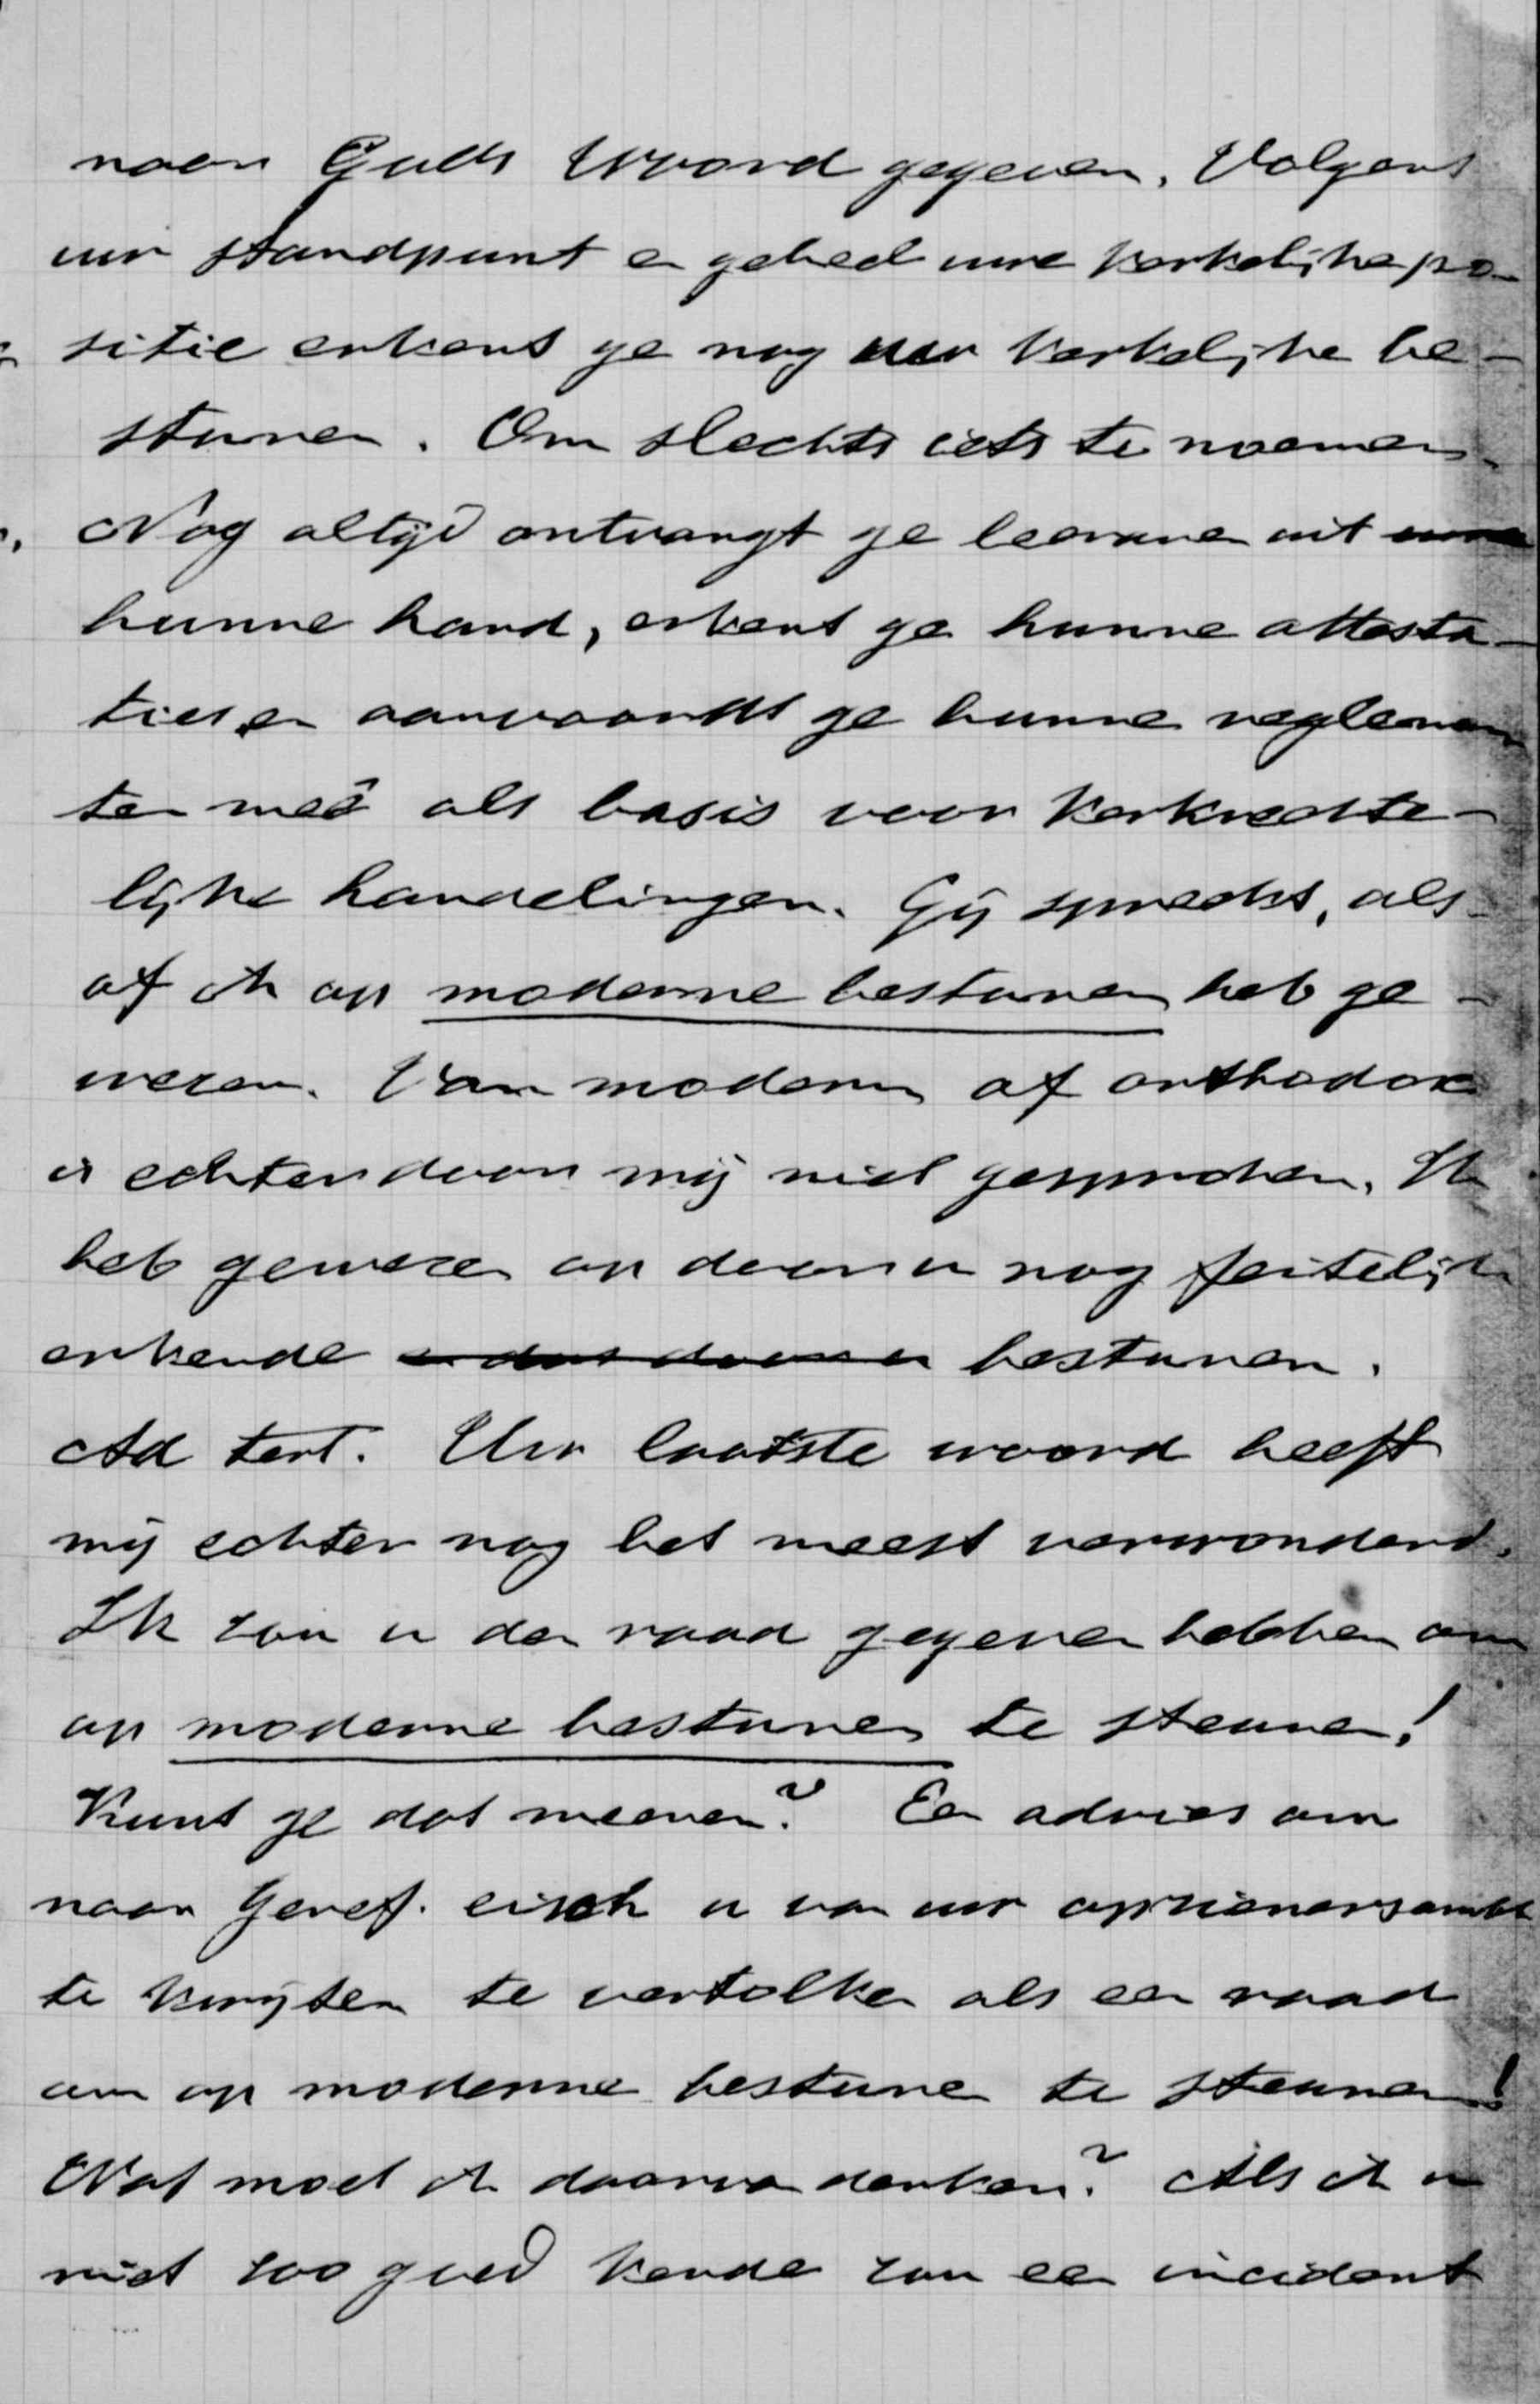 naar Gods Woord gegeven. Volgens
uw standpunt en geheel uwe kerkelijke po-
sitie erkent ge nog uw kerkelijke be-
sturen. Om slechts iets te noemen.
Nog altijd ontvangt ge leeraren uit uwe
hunne hand, erkent ge hunne attesta-
ties en aanvaardt ge hunne reglemen
ten meê als basis voor kerkrechte-
lijke handelingen. Gij spreekt, als-
of ik op moderne besturen heb ge-
wezen. Van modern of orthodox
is echter door mij niet gesproken. Ik
heb gewezen op door u nog feitelijk
erkende en dat door u besturen.
Ad tert. Uw laatste woord heeft
mij echter nog het meest verwonderd.
Ik zou u den raad gegeven hebben om
op moderne besturen te steunen!
Kunt ge dat meenen? Een advies om
naar Geref. eisch u van uw opzienersambt
te kwijten te vertolken als een raad
om op moderne besturen te steunen!
Wat moet ik daarvan denken? Als ik u
niet zoo goed kende zou een incident